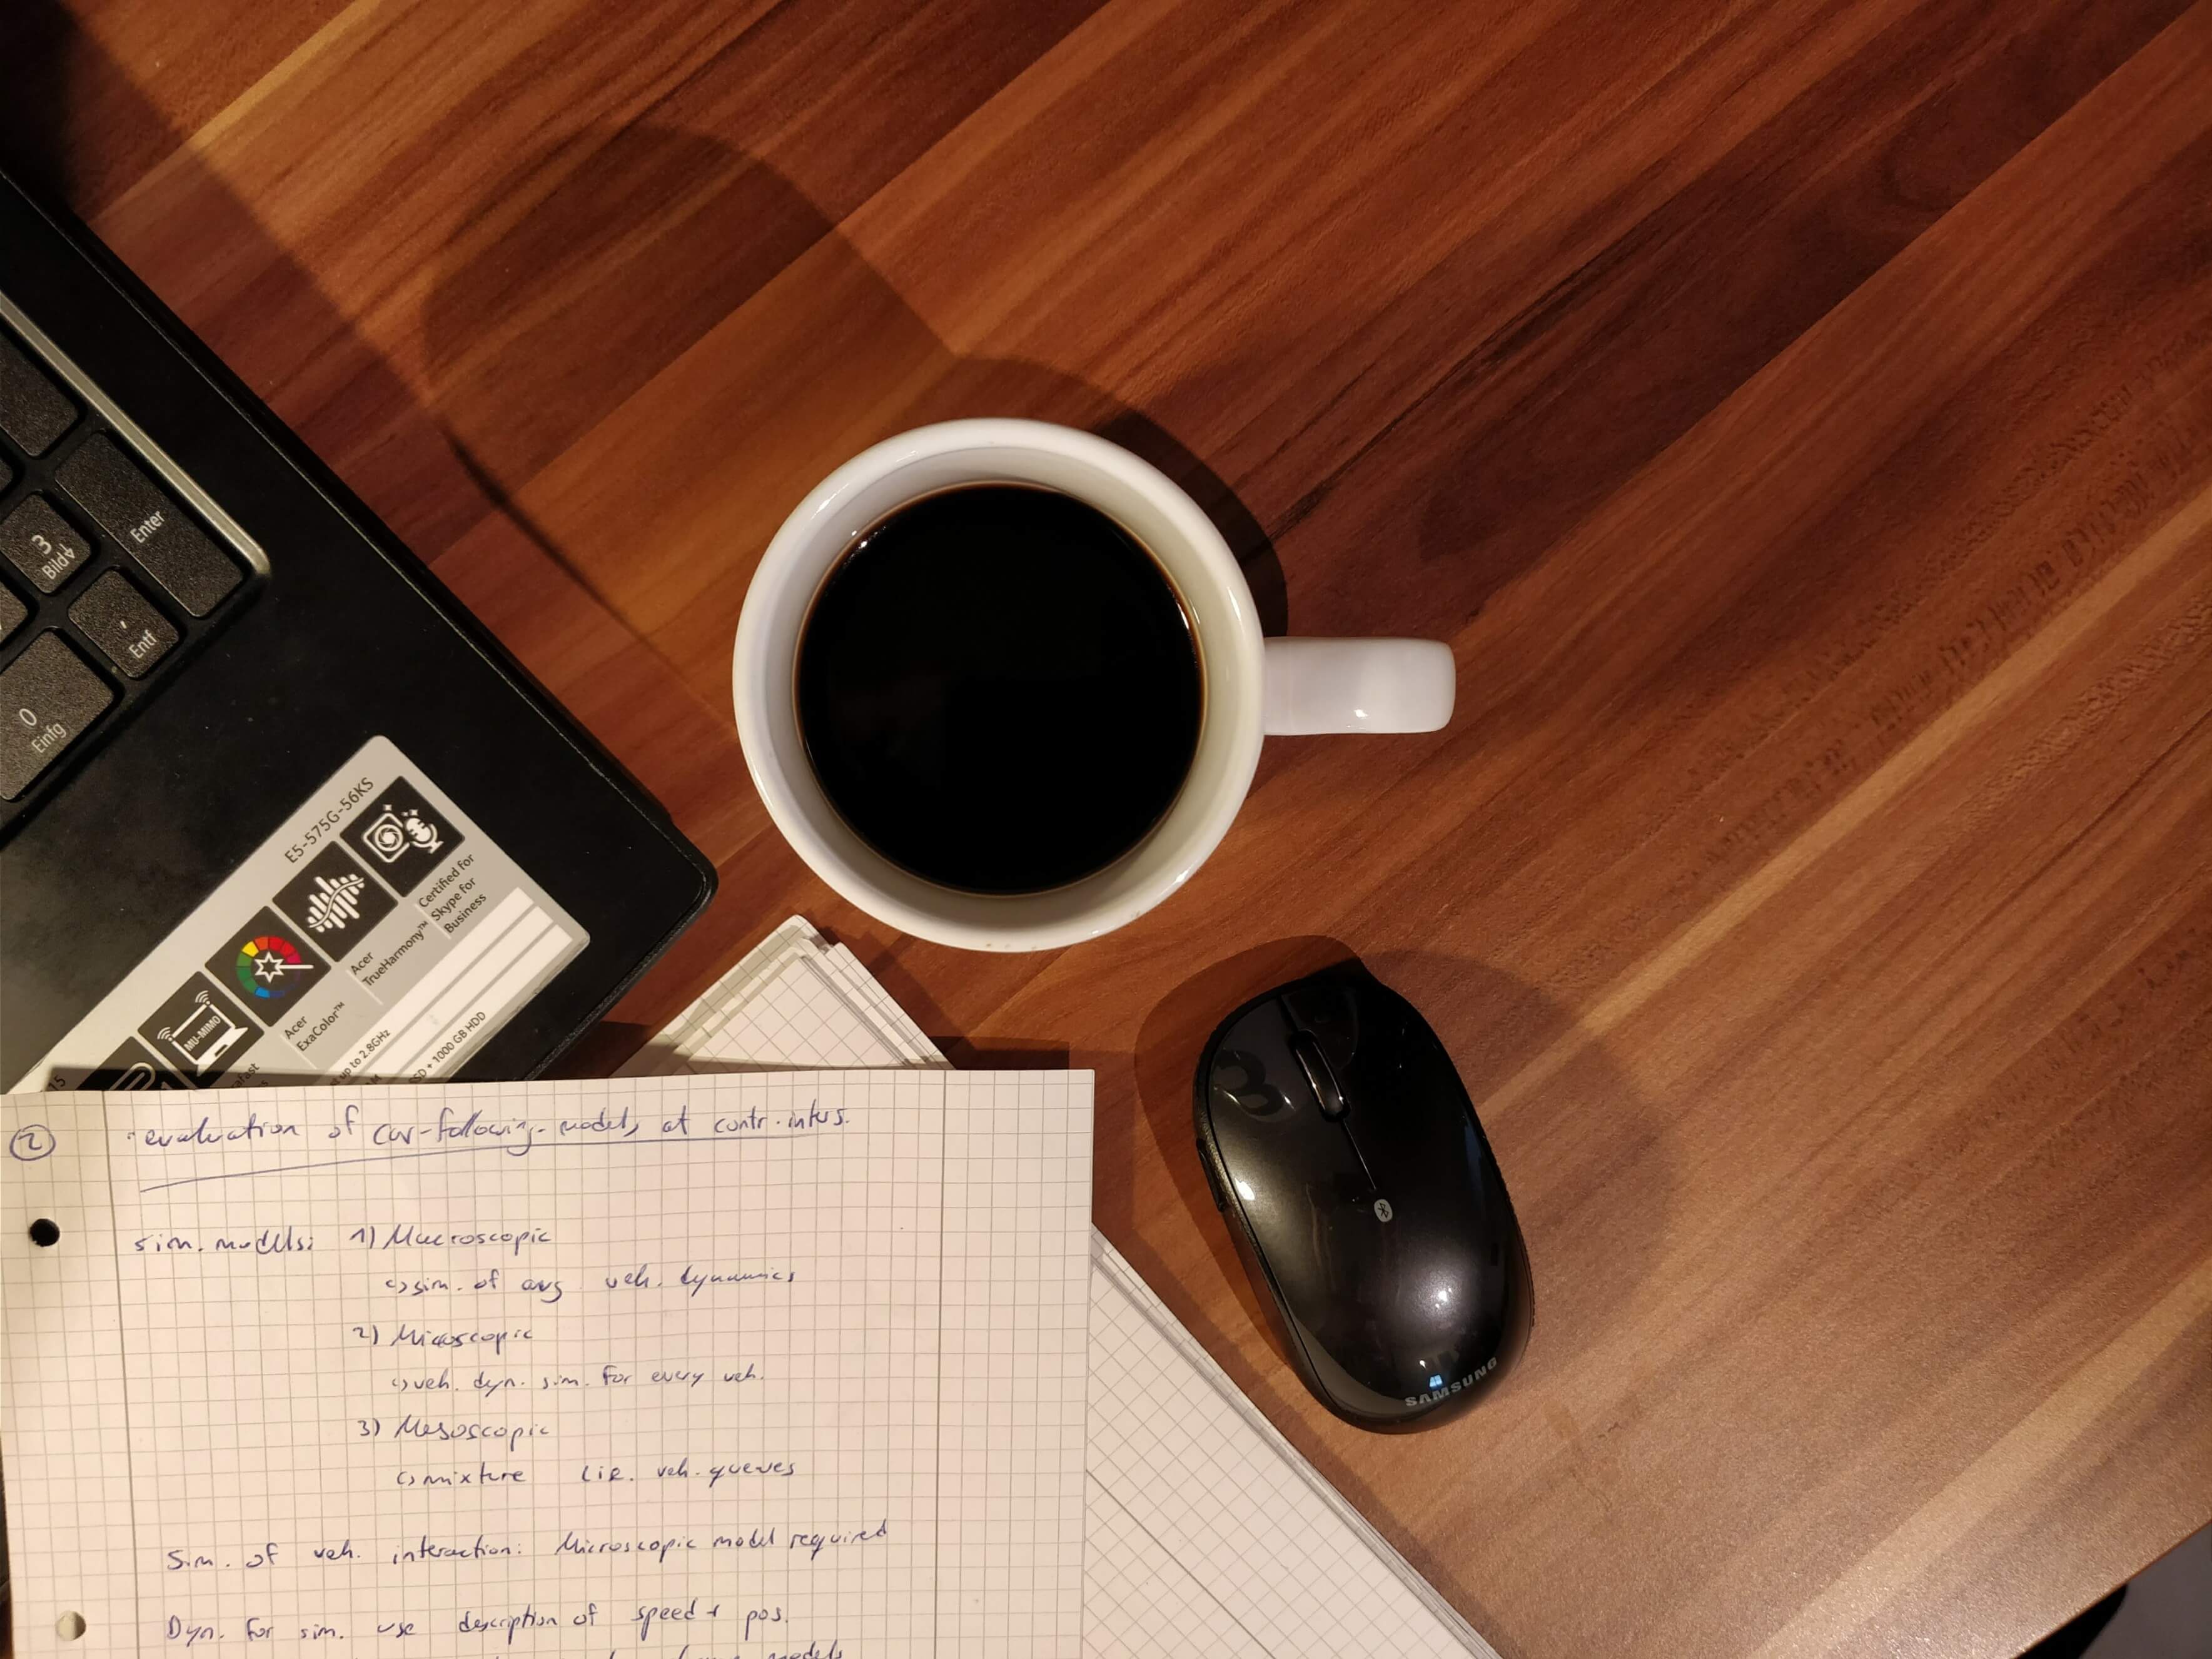 3
Bild
Enter
,
Entf
0
Einfg
E5-575G-56KS
Certified for
Skype for
Business
Acer
TrueHarmony™
Acer
ExaColor™
MU-MIMO
up to 2.8GHz
+ 1000 GB HDD
15
SAMSUNG
2 evaluation of car-following-models at contr. inters.
sim. models: 1) Macroscopic
sim. of avg veh. dynamics
2) Microscopic
veh. dyn. sim. for every veh.
3) Mesoscopic
mixture i.e. veh. queues
Sim. of veh. interaction: Microscopic model required
Dyn. for sim. use description of speed + pos.
models